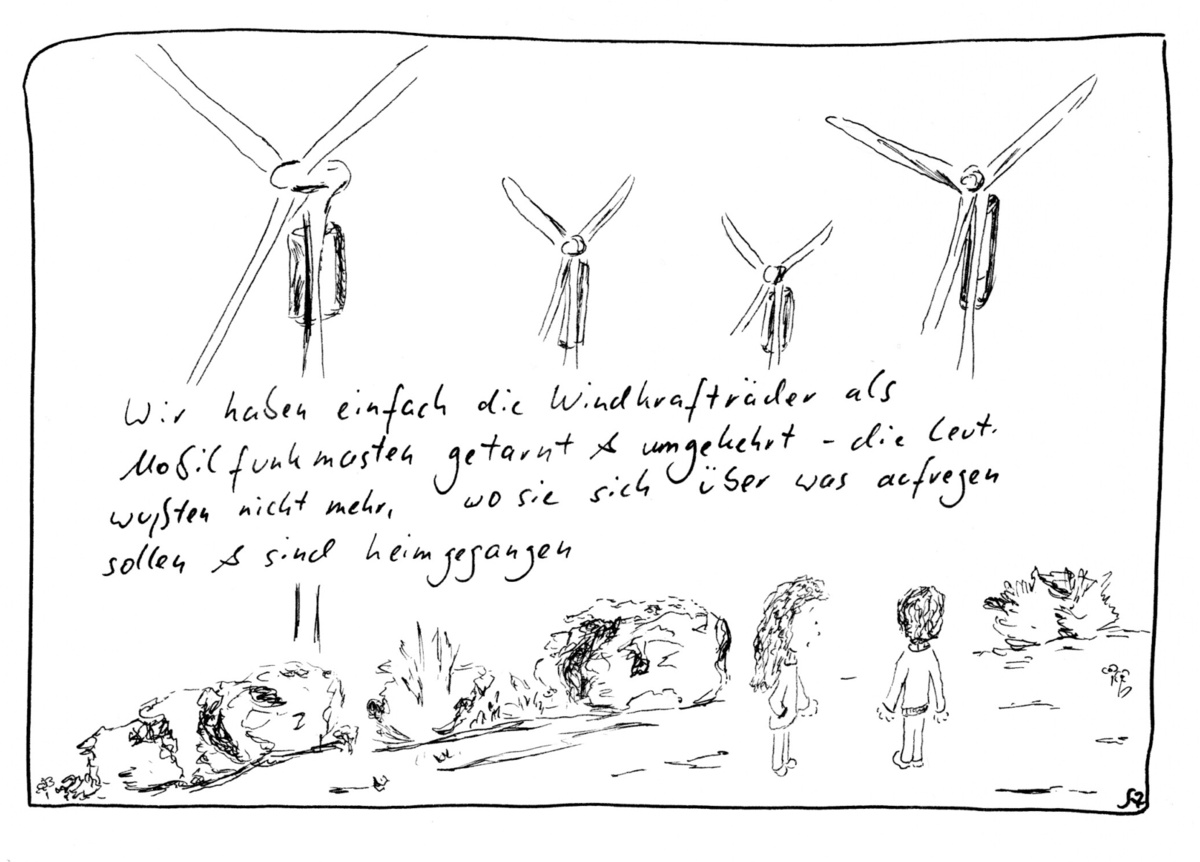 Wir haben einfach die Windkrafträder als
Mobilfunkmasten getarnt & umgekehrt – die Leut.
wußten nicht mehr, wo sie sich über was aufregen
sollen & sind heimgegangen